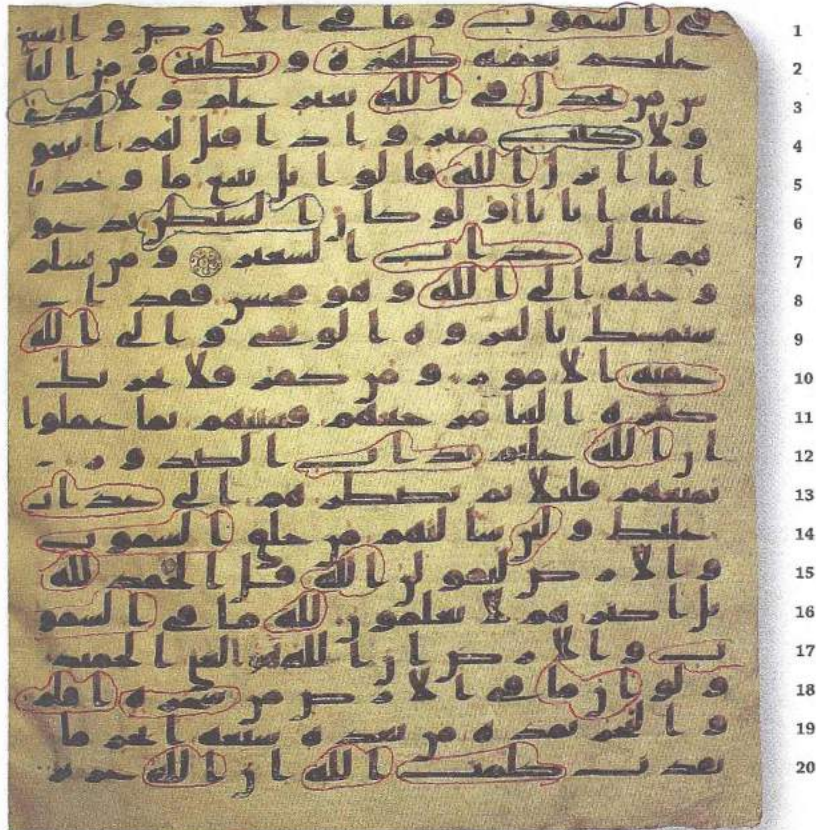 في السموت و ما في الارض و اسبغ 1
عليكم نعمه ظهرة و بطنة و من النا 2
س من يجدل في الله بغير علم و لا هدى 3
و لا كتب منير و اذا قيل لهم اتبعو 4
ا ما انزل الله قالوا بل نتبع ما وجدنا 5
عليه ابانا اولو كان الشيطن يدعو 6
هم الى عذاب السعير و من يسلم 7
وجهه الى الله و هو محسن فقد ا 8
ستمسك بالعروة الوثقى و الى الله 9
عقبة الامور و من كفر فلا يحزنك 10
كفره الينا مرجعهم فننبئهم بما عملوا 11
ان الله عليم بذات الصدور 12
نمتعهم قليلا ثم نضطرهم الى عذاب 13
غليظ و لئن سالتهم من خلق السموت 14
و الارض ليقولن الله قل الحمد لله 15
بل اكثرهم لا يعلمون لله ما في السمو 16
ت و الارض ان الله هو الغني الحميد 17
و لو ان ما في الارض من شجرة اقلم 18
و البحر يمده من بعده سبعة ابحر ما 19
نفدت كلمت الله ان الله عزيز 20